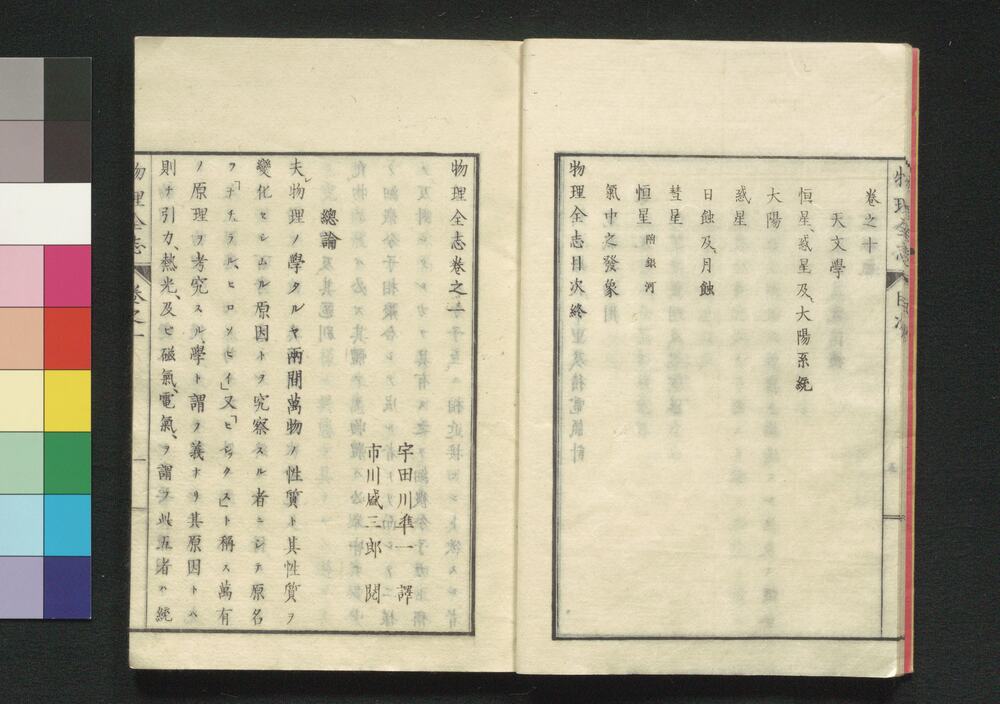 物理全志 目次
卷之十
天文學
恒星、惑星及、大陽系統
大陽
惑星
日蝕及、月蝕
彗星
恒星 附銀河
氣中之發象
物理全志目次終
物理全志卷之一
宇田川準一 譯
市川盛三郎 閲
總論
夫物理ノ學タルヤ兩間萬物ノ性質ト其性質ヲ
變化セシムル原因トヲ究察スル者ニシテ原名
ヲ「ナチュラル、ヒロソヒイ」又「ヒシックス」ト稱ス萬有
ノ原理ヲ考究スル、學ト謂フ義ナリ其原因トハ
則チ引力、熱光、及ヒ磁氣、電氣、ヲ謂フ此五者ハ統
物理全志 卷之一 一